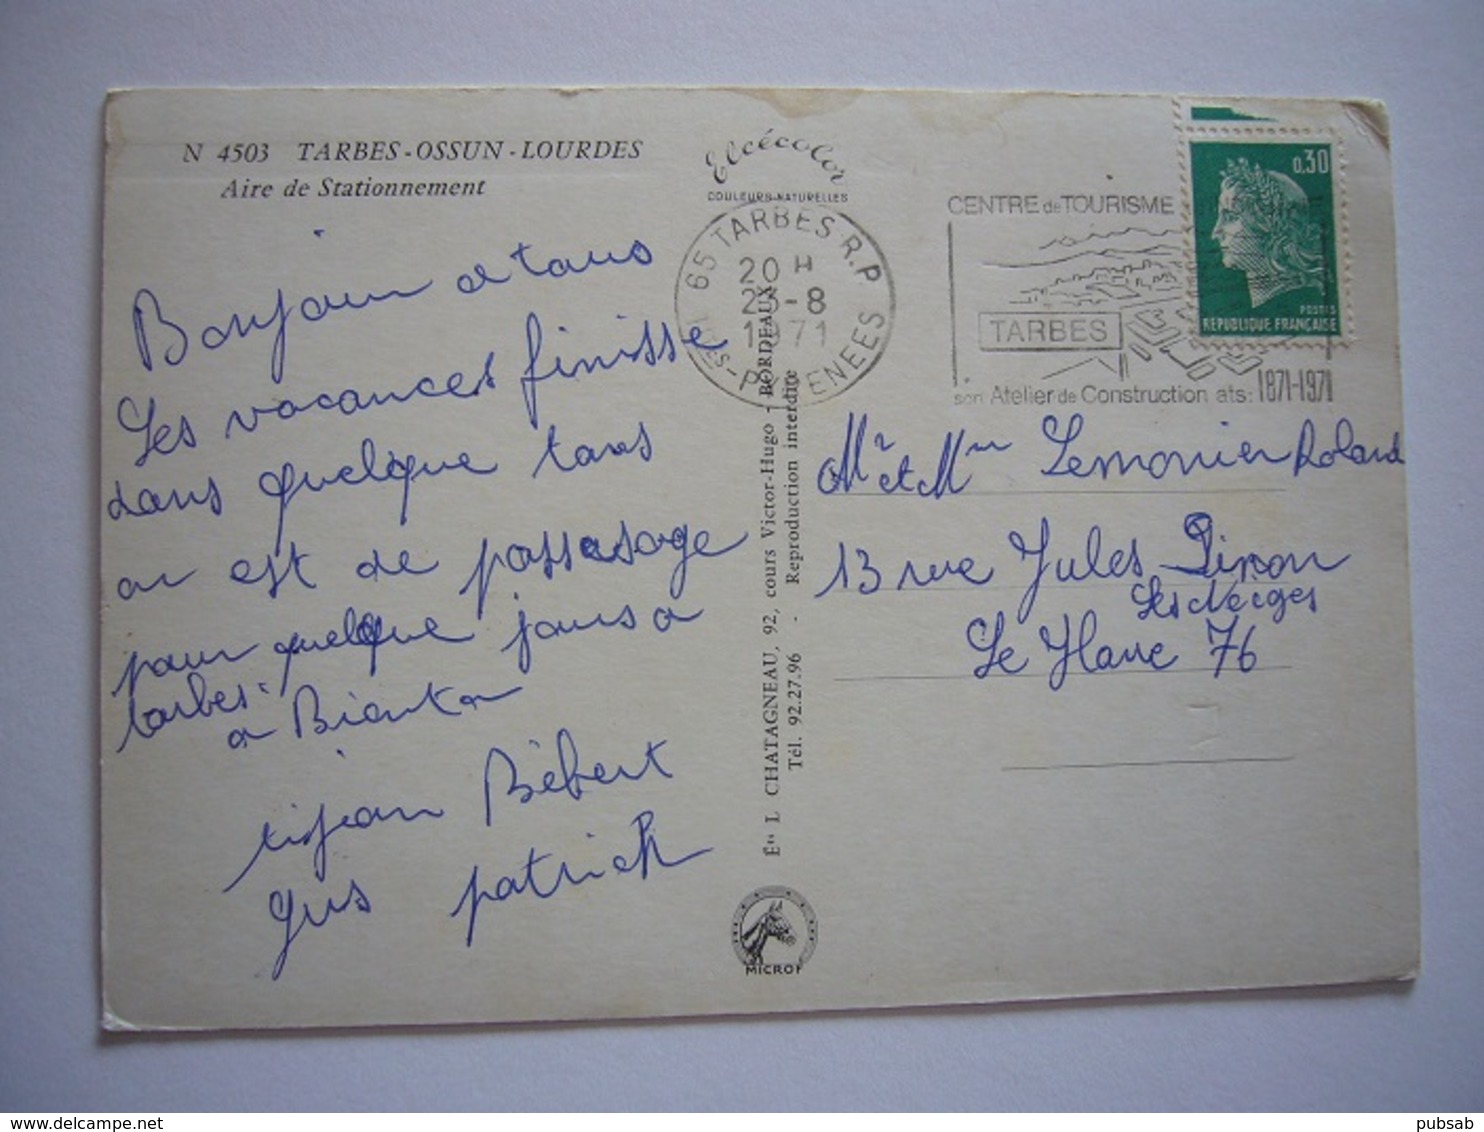 N 4503 TARBES-OSSUN-LOURDES
Aire de Stationnement
Elcécolor
COULEURS NATURELLES
Bonjour a tous
Les vacances finisse
dans quelque tans
on est de passasage
pour quelque jours a
tarbes.
a Bientot
tijean Bébert
Gus patrick
65 TARBES R.P.
20 H
23-8
1971
PYRENEES
CENTRE de TOURISME
TARBES
son Atelier de Construction ats: 1871-1971
0,30
POSTES
REPUBLIQUE FRANÇAISE
Mr et Mme Lemonier Roland
13 rue Jules
Les Neiges
Le Havre 76
Éts L CHATAGNEAU, 92, cours Victor-Hugo - BORDEAUX
Tél. 92.27.96 - Reproduction interdite
MICROF
pubsab